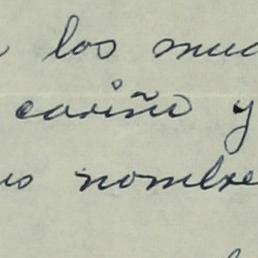 los muc
cariño y
us nombre